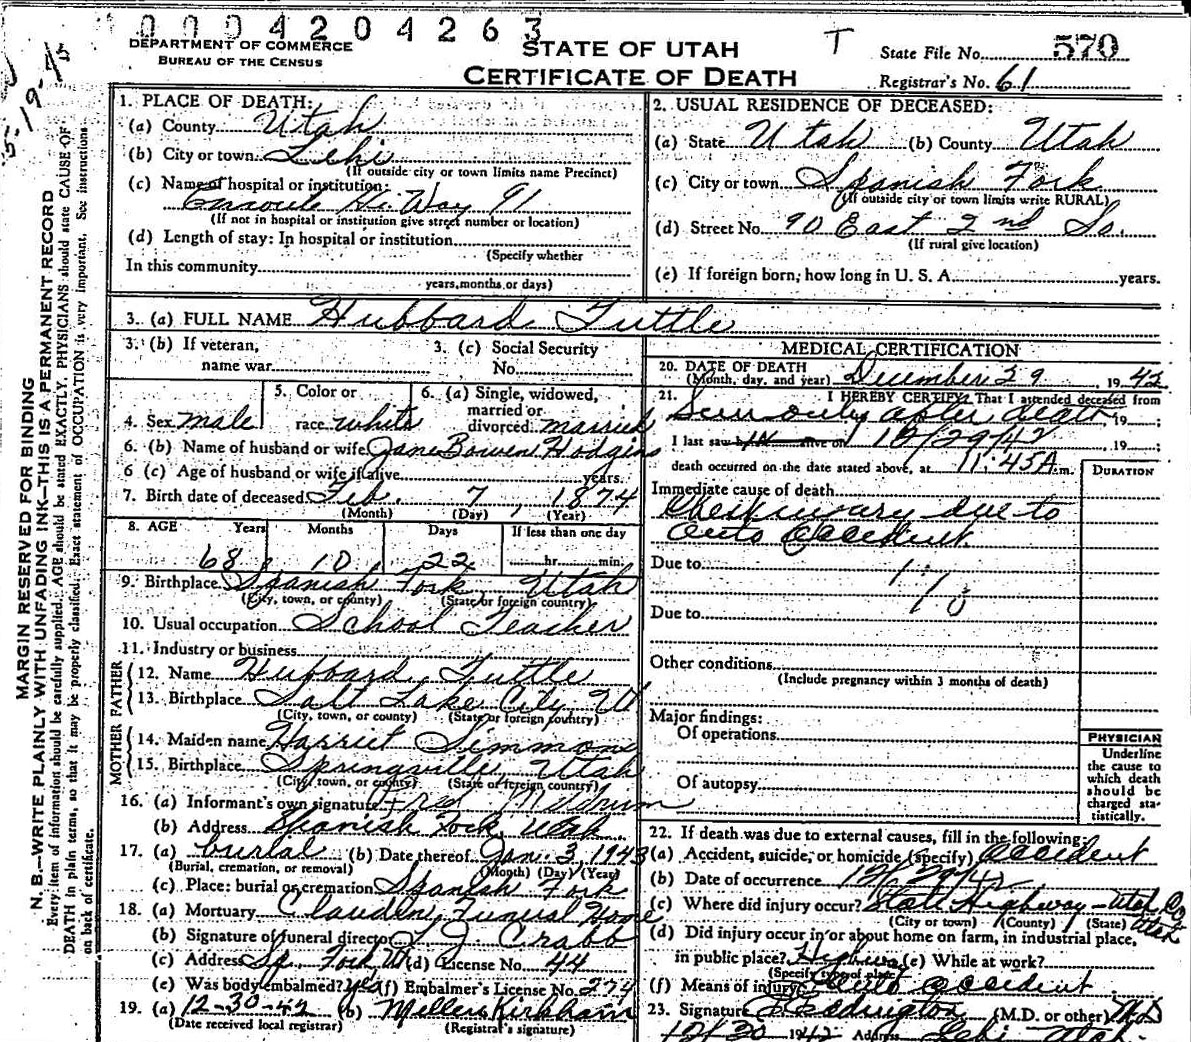 0004204263
DEPARTMENT OF COMMERCE
BUREAU OF THE CENSUS
STATE OF UTAH
CERTIFICATE OF DEATH
T
State File No. 570
Registrar's No. 61
MARGIN RESERVED FOR BINDING
N. B.—WRITE PLAINLY WITH UNFADING INK—THIS IS A PERMANENT RECORD
Every item of information should be carefully supplied. AGE should be stated EXACTLY. PHYSICIANS should state CAUSE OF
DEATH in plain terms, so that it may be properly classified. Exact statement of OCCUPATION is very important. See instructions
on back of certificate.
1. PLACE OF DEATH:
(a) County Utah
(b) City or town Lehi
(If outside city or town limits name Precinct)
(c) Name of hospital or institution:
Enroute Hi-Way 91
(If not in hospital or institution give street number or location)
(d) Length of stay: In hospital or institution
(Specify whether
In this community
years, months, or days)
2. USUAL RESIDENCE OF DECEASED:
(a) State Utah (b) County Utah
(c) City or town Spanish Fork
(If outside city or town limits write RURAL)
(d) Street No. 90 East 2nd So.
(If rural give location)
(e) If foreign born, how long in U. S. A. years.
3. (a) FULL NAME Hubbard Tuttle
3. (b) If veteran,
name war
3. (c) Social Security
No.
4. Sex male
5. Color or
race white
6. (a) Single, widowed,
married or
divorced married
6. (b) Name of husband or wife Jane Bowen Hodgins
6 (c) Age of husband or wife if alive years.
7. Birth date of deceased Feb. 7, 1874
(Month) (Day) (Year)
8. AGE Years Months Days If less than one day
68 10 22 hr. min.
9. Birthplace Spanish Fork Utah
(City, town, or county) (State or foreign country)
10. Usual occupation School Teacher
11. Industry or business
FATHER
12. Name Hubbard Tuttle
13. Birthplace Salt Lake City, Ut
(City, town, or county) (State or foreign country)
MOTHER
14. Maiden name Harriet Simmons
15. Birthplace Springville, Utah
(City, town, or county) (State or foreign country)
16. (a) Informant's own signature Fred Meldrum
(b) Address Spanish Fork, Utah
17. (a) burial (b) Date thereof Jan. 3, 1943
(Burial, cremation, or removal) (Month) (Day) (Year)
(c) Place: burial or cremation Spanish Fork
18. (a) Mortuary Claudin Funeral Home
(b) Signature of funeral director J. Crabb
(c) Address Sp. Fork, Ut (d) License No. 44
(e) Was body embalmed? yes (f) Embalmer's License No. 274
19. (a) 12-30-42 (b) Kirkham
(Date received local registrar) (Registrar's signature)
MEDICAL CERTIFICATION
20. DATE OF DEATH
(Month, day, and year) December 29, 1942
21. I HEREBY CERTIFY That I attended deceased from
Seen only after death, 19 ;
I last saw alive on 12/29/42, 19 ;
death occurred on the date stated above, at 11:45A m.
DURATION
Immediate cause of death
Chest injury due to
auto accident
Due to
170
Due to
Other conditions
(Include pregnancy within 3 months of death)
Major findings:
Of operations
Of autopsy
PHYSICIAN
Underline
the cause to
which death
should be
charged sta-
tistically.
22. If death was due to external causes, fill in the following:
(a) Accident, suicide, or homicide (specify) Accident
(b) Date of occurrence 12/29/42
(c) Where did injury occur? State Highway—Utah Co Utah
(City or town) (County) (State)
(d) Did injury occur in or about home on farm, in industrial place,
in public place? Highway (e) While at work?
(Specify type of place)
(f) Means of injury Auto accident
23. Signature Eddington (M.D. or other) M.D
12/30 1942 Address Lehi Utah